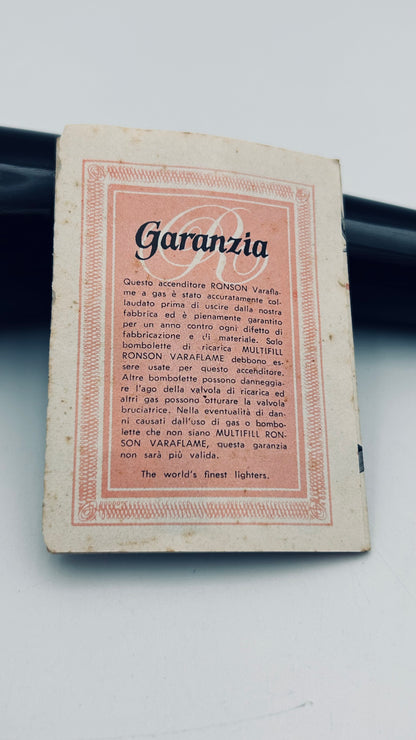 Garanzia
Questo accenditore RONSON Varafla-
me a gas è stato accuratamente col-
laudato prima di uscire dalla nostra
fabbrica ed è pienamente garantito
per un anno contro ogni difetto di
fabbricazione e di materiale. Solo
bombolette di ricarica MULTIFILL
RONSON VARAFLAME debbono es-
sere usate per questo accenditore.
Altre bombolette possono danneggia-
re l'ago della valvola di ricarica ed
altri gas possono otturare la valvola
bruciatrice. Nella eventualità di dan-
ni causati dall'uso di gas o bombo-
lette che non siano MULTIFILL RON-
SON VARAFLAME, questa garanzia
non sarà più valida.
The world's finest lighters.